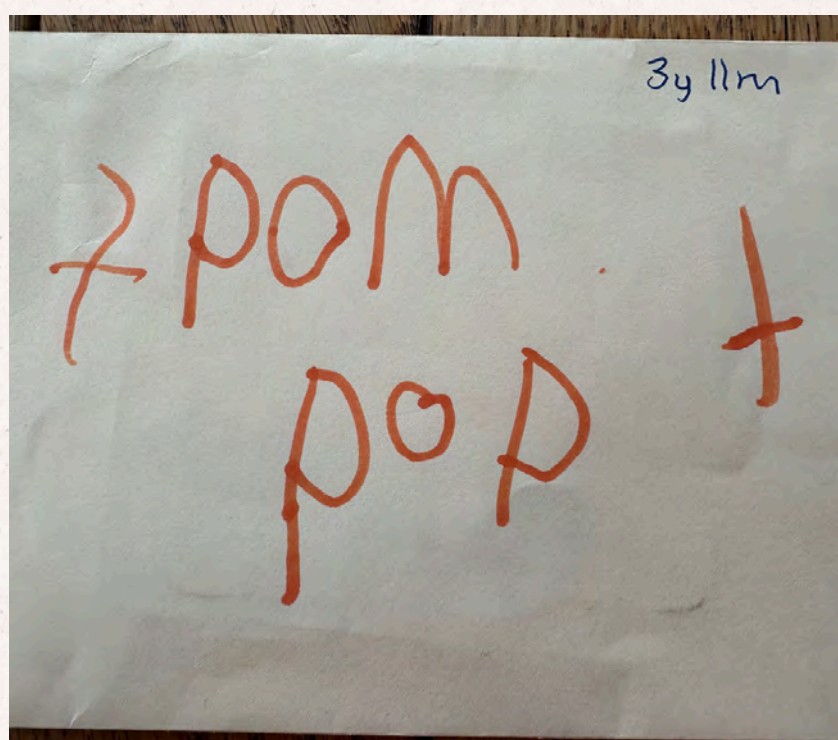 3y 11m
t pom t
pop